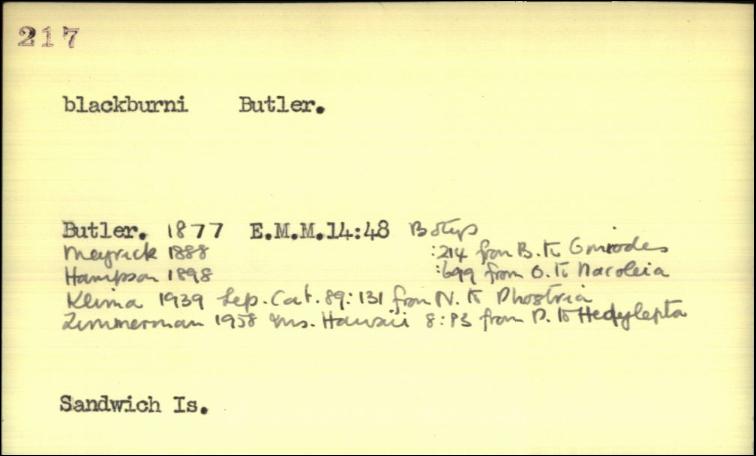 217
blackburni Butler.
Butler. 1877 E.M.M.14:48 Botys
Meyrick 1888 :214 from B. to Omiodes
Hampson 1898 :699 from O. to Nacoleia
Klima 1939 Lep. Cat. 89:131 from N. to Phostria
Zimmerman 1958 Ins. Hawaii 8:83 from P. to Hedylepta
Sandwich Is.